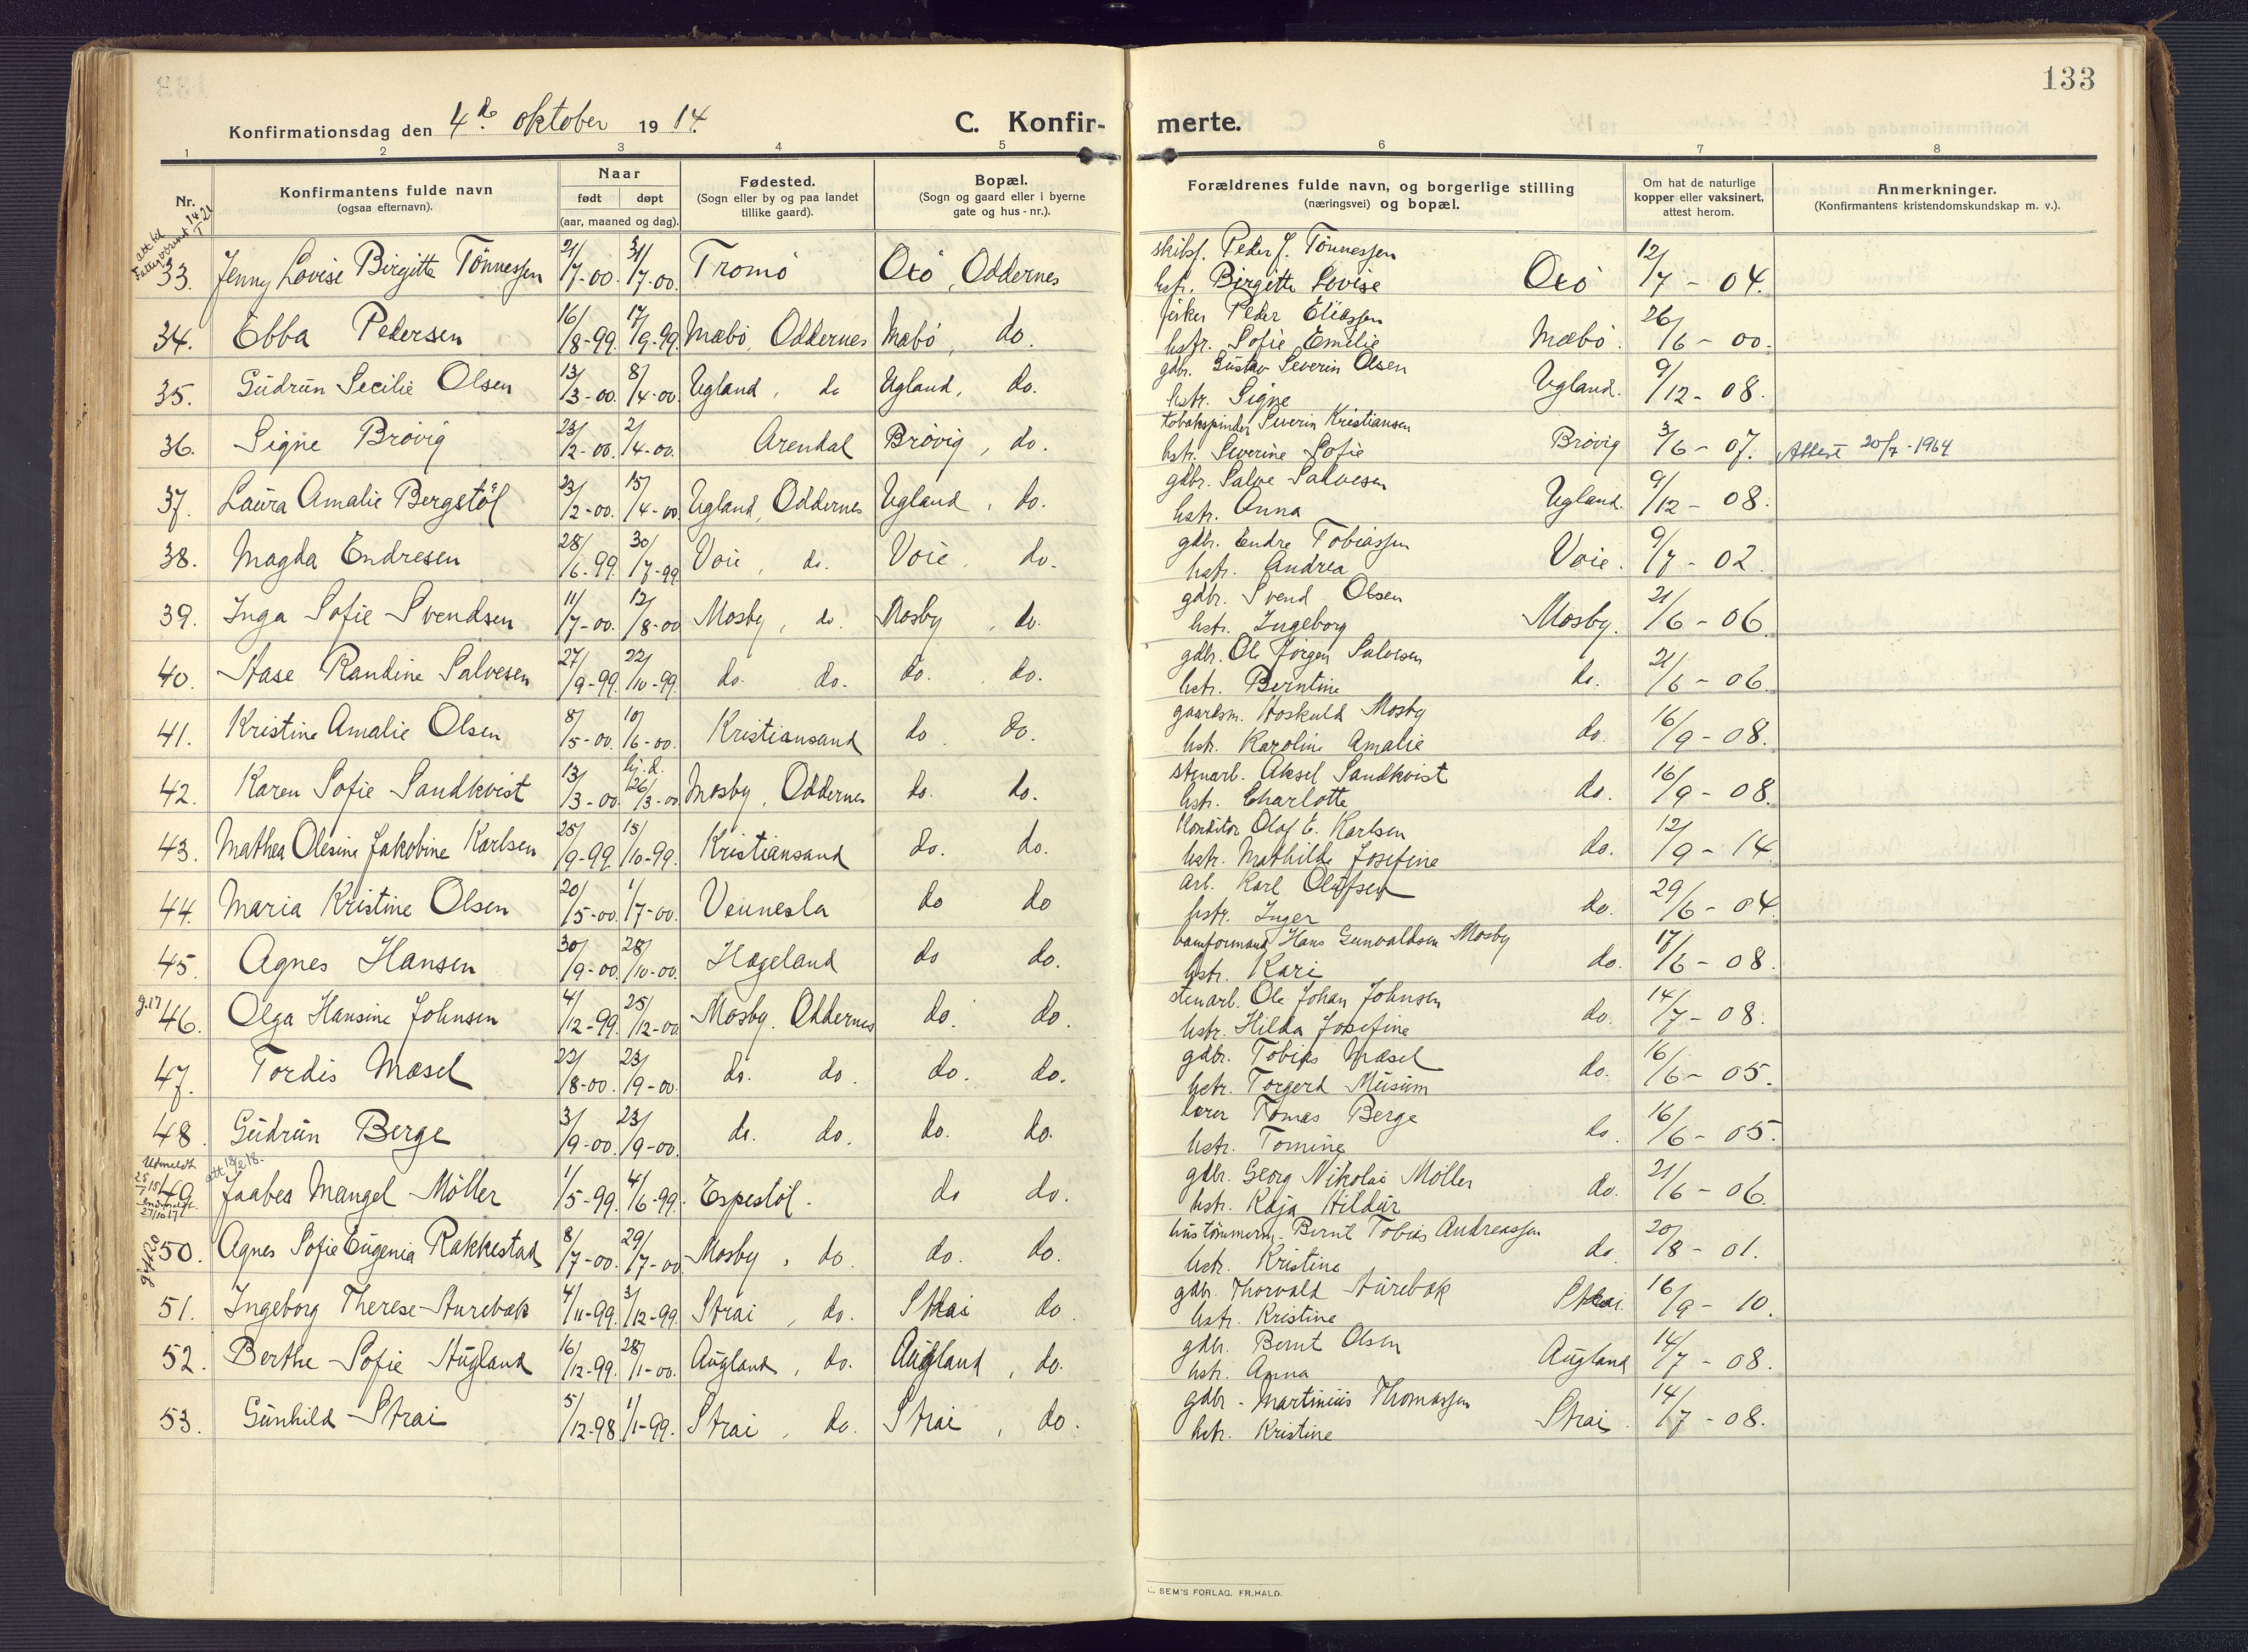 133
Konfirmationsdag den 4de oktober 1914. C. Konfir- merte.
1 2 3 4 5 6 7 8
Nr. Konfirmantens fulde navn (ogsaa efternavn). Naar født døpt (aar, maaned og dag). Fødested. (Sogn eller by og paa landet tillike gaard). Bopæl. (Sogn og gaard eller i byerne gate og hus-nr.). Forældrenes fulde navn, og borgerlige stilling (næringsvei) og bopæl. Om hat de naturlige kopper eller vaksinert, attest herom. Anmerkninger. (Konfirmantens kristendomskundskap m. v.).
33. Jenny Lovise Birgitte Tönnessen 21/7-00. 31/7-00. Tromö Oxö, Oddernes skibsf. Peder J. Tönnessen
hstr. Birgitte Lovise Oxö 12/7 - 04.
34. Ebba Pedersen 16/8-99. 17/9-99. Mæbö, Oddernes Mæbö, do. fisker Peder Eliassen
hstr. Sofie Emilie Mæbö. 26/6 - 00.
35. Gudrun Secilie Olsen 13/3-00. 8/4-00. Ugland, do Ugland, do. gdbr. Gustav Severin Olsen
hstr. Signe Ugland. 9/12 - 08.
36. Signe Brövig 23/12-00. 2/4-00. Arendal Brövig, do. tobakspinder Severin Kristiansen
hstr. Severine Sofie Brövig 3/6 - 07. Attest 20/7-1964
37. Laura Amalie Bergstöl 23/2-00. 15/4-00 Ugland, Oddernes Ugland, do. gdbr. Salve Salvesen
hstr. Anna Ugland. 9/12 - 08.
38. Magda Endresen 28/6-99. 30/7-99. Voie, do. Voie, do. gdbr. Endre Tobiassen
hstr. Andrea Voie. 9/7 - 02.
39. Inga Sofie Svendsen 11/7-00. 12/8-00 Mosby, do. Mosby, do. gdbr. Svend Olsen
hstr. Ingeborg Mosby. 21/6 - 06.
40. Aase Randine Salvesen 27/9-99. 22/10-99. do. do. do. do. gdbr. Ole Jörgen Salvesen
hstr. Berntine do. 21/6 - 06.
41. Kristine Amalie Olsen 8/5-00. 10/6-00. Kristiansand do. do. gaardsm. Hoskuld Mosby
hstr. Karoline Amalie do. 16/9 - 08.
42. Karen Sofie Sandkvist 13/3-00. hj. d. 26/3-00. Mosby, Oddernes do. do. stenarb. Aksel Sandkvist
hstr. Charlotte do. 16/9 - 08.
43. Mathea Olesine Jakobine Karlsen 25/9-99. 15/10-99. Kristiansand do. do. Konditor Olaf E. Karlsen
hstr. Mathilde Josefine do. 12/9 - 14.
44. Maria Kristine Olsen 20/5-00. 1/7-00. Vennesla do do arb. Karl Olufsen
hstr. Inger do. 29/6 - 04.
45. Agnes Hansen 30/9-00. 28/10-00. Hægeland do do. Hans Gunvaldsen Mosby
hstr. Kari do. 17/6 - 08.
g.17 46. Olga Hansine Johnsen 4/12-99. 25/12-00 Mosby. Oddernes do. do. stenarb. Ole Johan Johnsen
hstr. Hilda Josefine do. 14/7 - 08.
47. Tordis Mæsel 22/8-00. 23/9-00. do. do. do. do. gdbr. Tobias Mæsel
hstr. Torgerd Musum do. 16/6 - 05.
48. Gudrun Berge 3/9-00. 23/9-00. do. do. do. do. lærer Tomas Berge
hstr. Tomine do. 16/6 - 05.
Udmeldt
49. Jaabea Mangel Möller 1/5-99. 4/6-99. Espestöl. do do. gdbr. Georg Nikolai Möller
hstr. Kaja Hildur do. 21/6 - 06.
gift 20 50. Agnes Sofie Eugenia Rakkestad 8/7-00. 29/7-00 Mosby, do. do. do. hustömmerm. Bernt Tobias Andreassen
hstr. Kristine do. 20/8 - 01.
51. Ingeborg Therese Aurebæk 4/11-99. 3/12-99. Strai, do. Strai do. gdbr. Thorvald Aurebæk
hstr. Kristine Strai. 16/9 - 10.
52. Berthe Sofie Augland 16/12-99. 28/1-00. Augland, do. Augland, do. gdbr. Bernt Olsen
hstr. Anna Augland 14/7 - 08.
53. Gunhild Strai 5/12-98 1/1-99. Strai, do. Strai, do. gdbr. Martinius Thomassen
hstr. Kristine Strai. 14/7 - 08.
SEM'S FORLAG, FR.HALD.